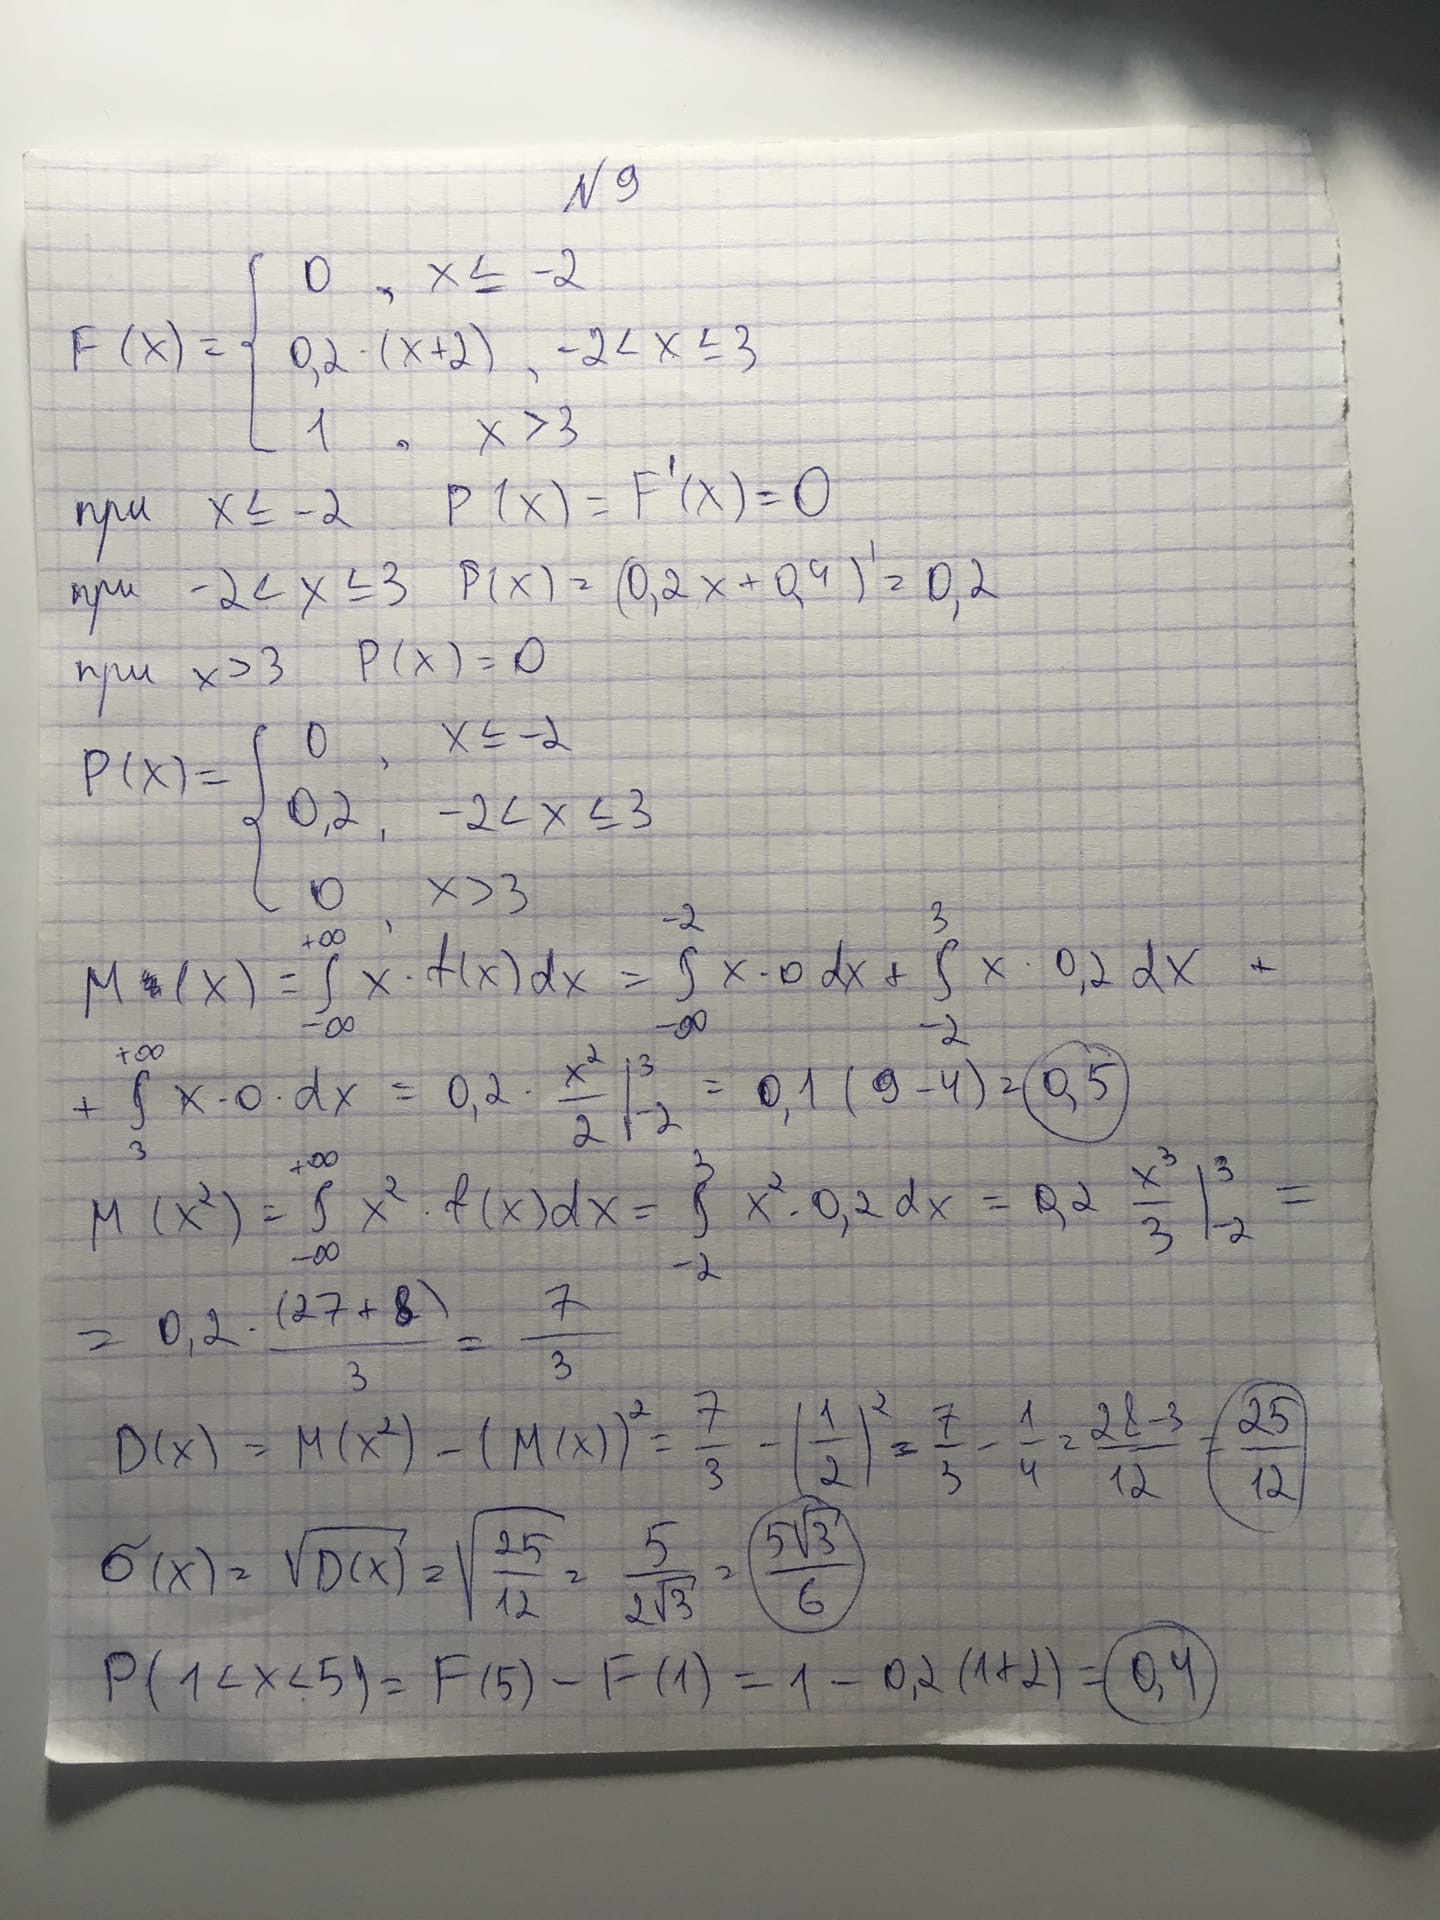 N 9
F(x) = { 0 , x ≤ -2
0,2·(x+2) , -2 < x ≤ 3
1 , x > 3
при x ≤ -2 P(x) = F'(x) = 0
при -2 < x ≤ 3 P(x) = (0,2x + 0,4)' = 0,2
при x > 3 P(x) = 0
P(x) = { 0 , x ≤ -2
0,2 , -2 < x ≤ 3
0 , x > 3
M (x) = ∫_{-∞}^{+∞} x · f(x) dx = ∫_{-∞}^{-2} x · 0 dx + ∫_{-2}^{3} x · 0,2 dx +
+ ∫_{3}^{+∞} x · 0 · dx = 0,2 · x²/2 |_{-2}^{3} = 0,1 (9 - 4) = 0,5
M (x²) = ∫_{-∞}^{+∞} x² · f(x) dx = ∫_{-2}^{3} x² · 0,2 dx = 0,2 x³/3 |_{-2}^{3} =
= 0,2 · (27 + 8)/3 = 7/3
D(x) = M(x²) - (M(x))² = 7/3 - (1/2)² = 7/3 - 1/4 = 28-3/12 = 25/12
σ(x) = √D(x) = √25/12 = 5/2√3 = 5√3/6
P(1 < x < 5) = F(5) - F(1) = 1 - 0,2(1+2) = 0,4